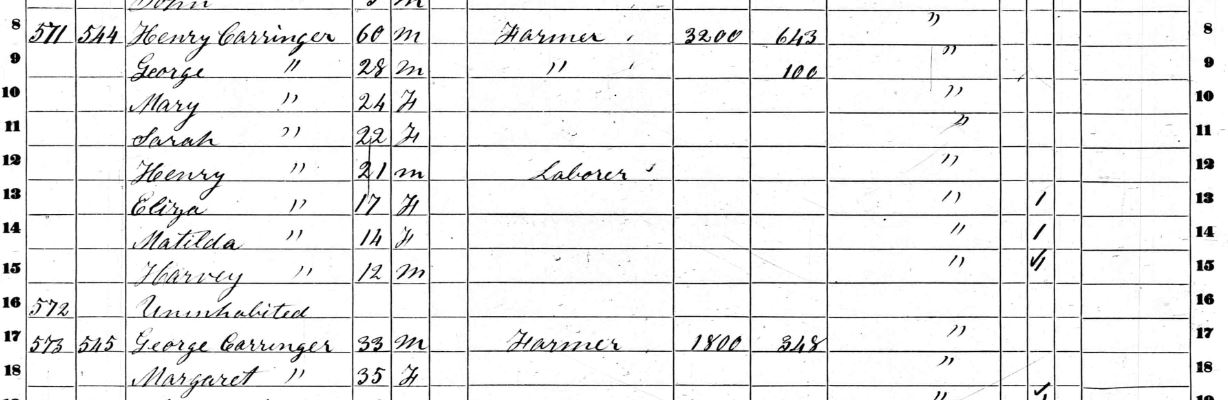 John m
8 571 544 Henry Carringer 60 m Farmer 3200 643 " 8
9 George " 28 m " 100 " 9
10 Mary " 24 F " 10
11 Sarah " 22 F " 11
12 Henry " 21 m Laborer " 12
13 Eliza " 17 F " 1 13
14 Matilda " 14 F " 1 14
15 Harvey " 12 m " 1 15
16 572 Uninhabited 16
17 573 545 George Carringer 33 m Farmer 1800 348 " 17
18 Margaret " 35 F " 18